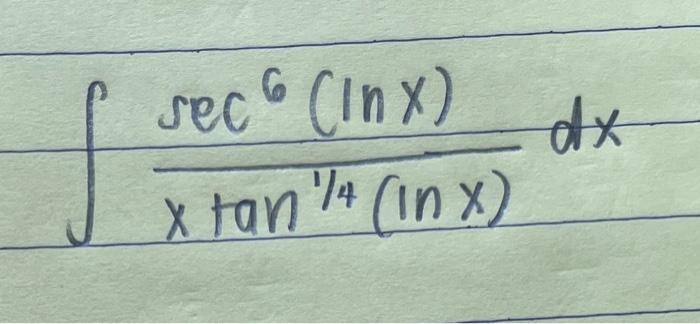 ∫ sec⁶ (ln x) / x tan^1/4 (ln x) dx